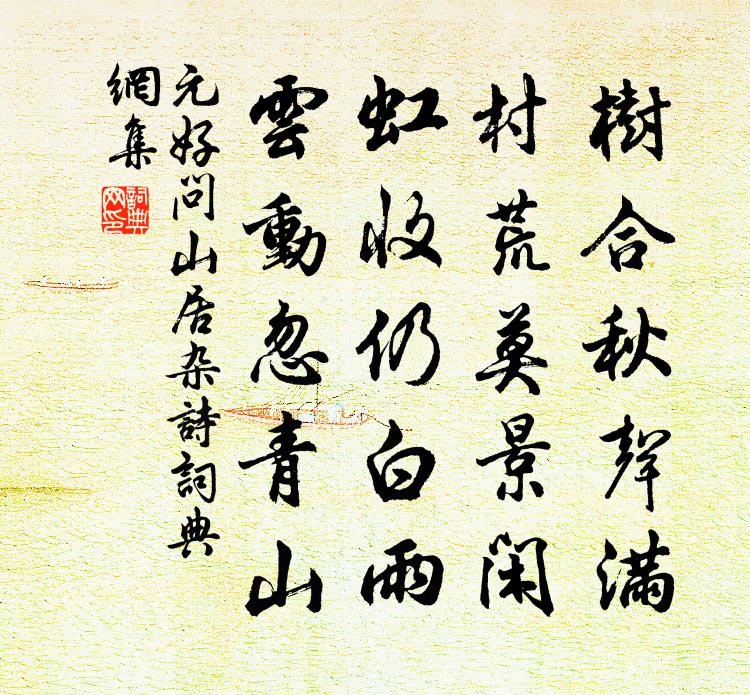 樹合秋聲滿
村荒莫景閑
虹收仍白雨
雲動忽青山
元好问山居杂詩詞典
網集
詞典網印